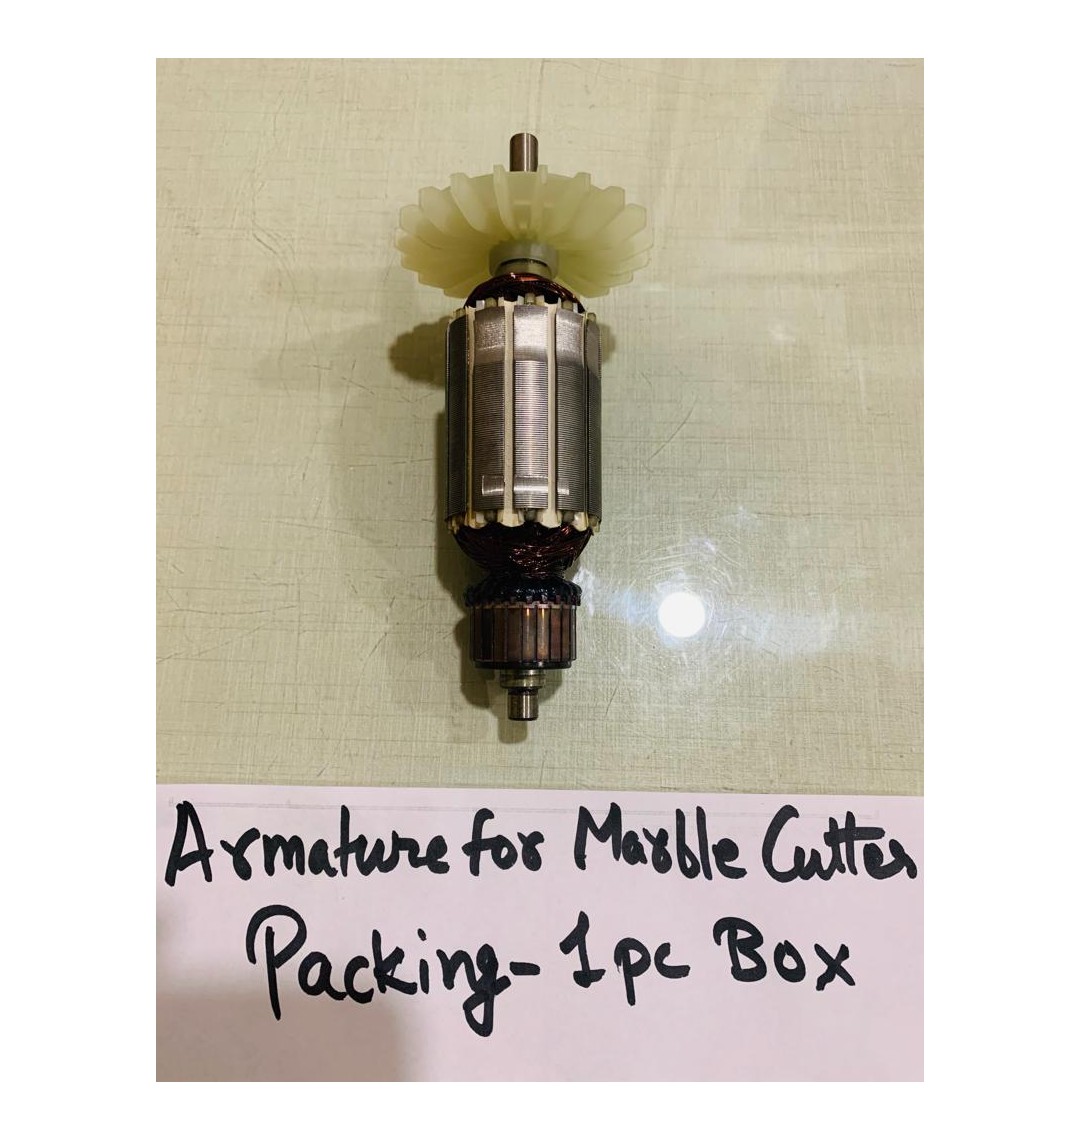 Armature for Marble Cutter
Packing- 1pc Box